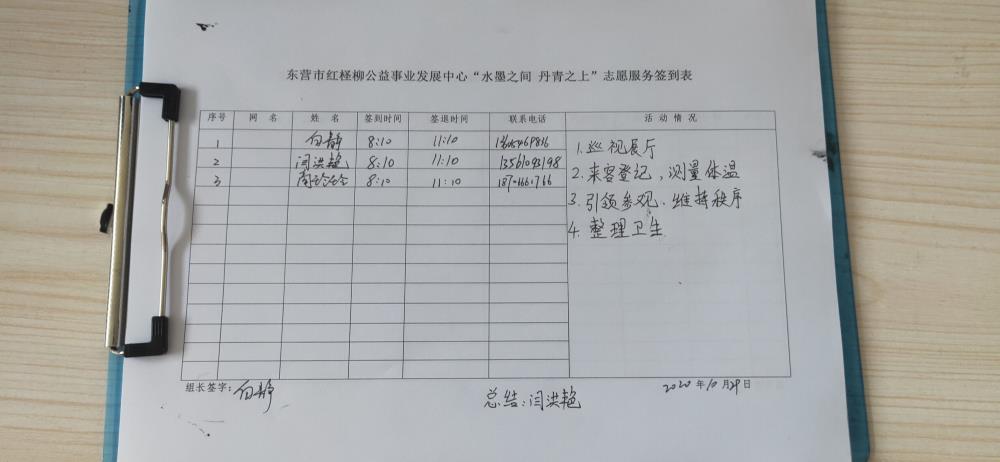 东营市红柽柳公益事业发展中心“水墨之间 丹青之上”志愿服务签到表
序号 网 名 姓 名 签到时间 签退时间 联系电话 活 动 情 况
1 白静 8:10 11:10
2 闫洪艳 8:10 11:10
3 8:10 11:10
1.巡视展厅
2.来客登记，测量体温
3.引领参观、维持秩序
4.整理卫生
组长签字：白静
总结：闫洪艳
2020年10月29日